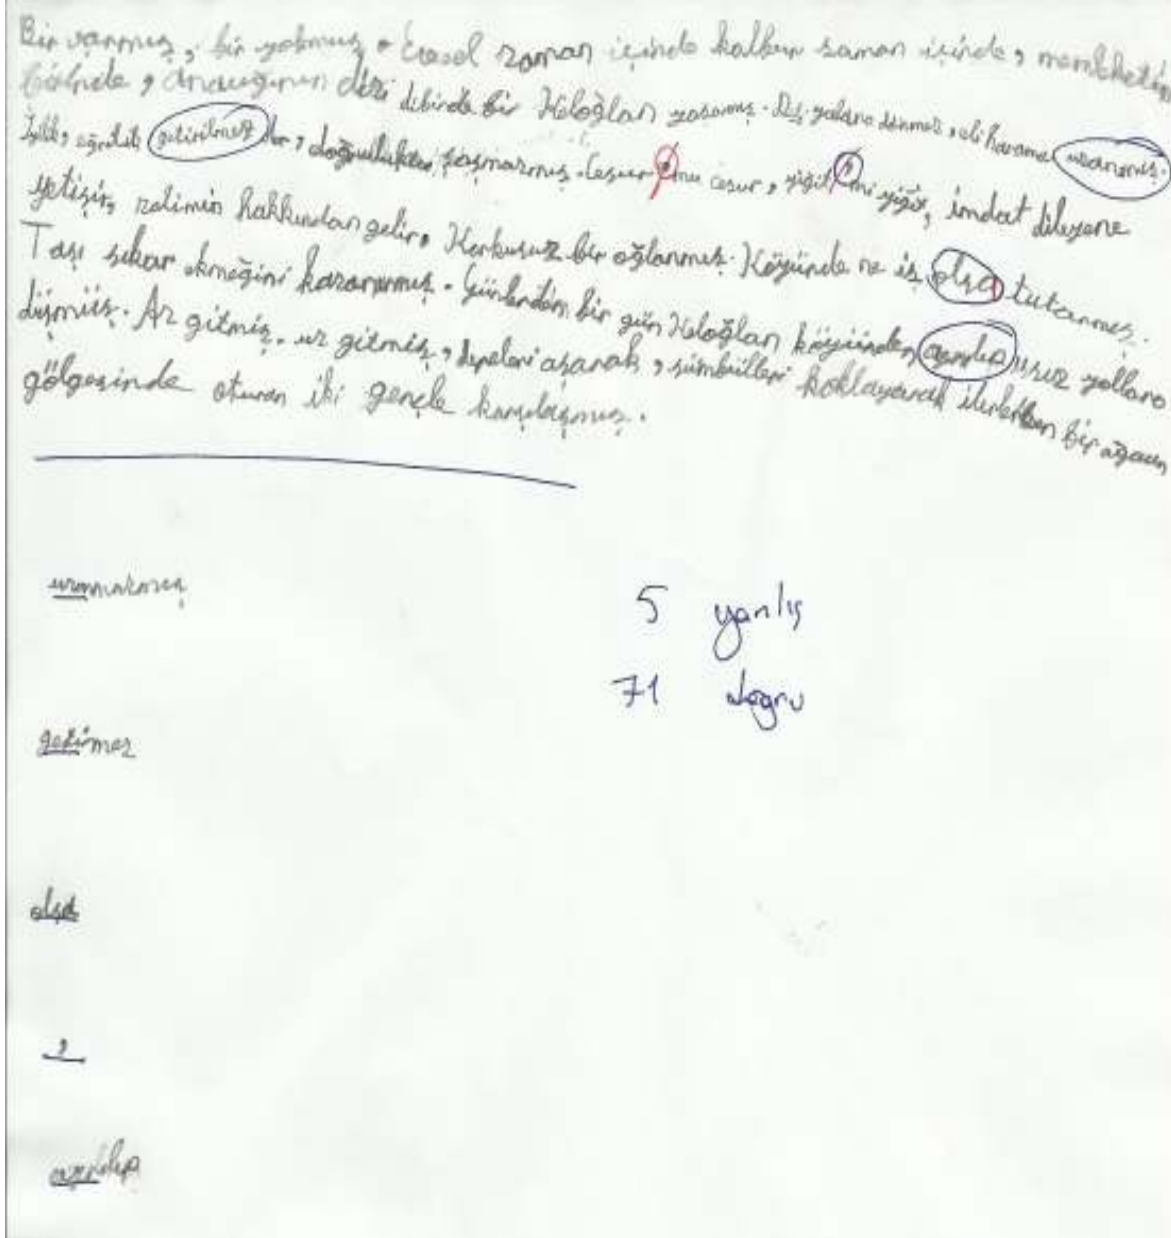 Bir varmış, bir yokmuş. Evvel zaman içinde kalbur saman içinde, memleketin
birinde, anacığının dizi dibinde bir Keloğlan yaşarmış. Dili yalana dönmez, eli harama uzanmış.
İyilik, eğrilik getirilmez der, doğruluktan şaşmazmış. Cesur, mu cesur, yiğit, mi yiğit, imdat dileyene
yetişir, zalimin hakkından gelir. Korkusuz bir oğlanmış. Köyünde ne iş olsa tutarmış.
Taşı sıkar ekmeğini kazanırmış. Günlerden bir gün Keloğlan köyünden ıssız yollara
düşmüş. Az gitmiş, uz gitmiş, tepeleri aşarak, sümbülleri koklayarak ilerlerken bir ağacın
gölgesinde oturan iki gençle karşılaşmış.
5 yanlış
71 doğru
getirmez
olsa
,
ayrılıp